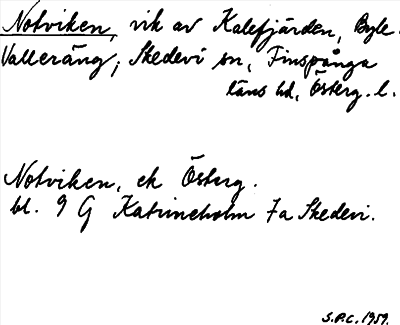 Notviken, vik av Kalefjärden, Byle.
Valleräng, Skedevi sn, Finspånga
läns hd, Österg. l.
Notviken, ek Österg.
bl. 9 G Katrineholm 7a Skedevi.
S.P.C. 1959.